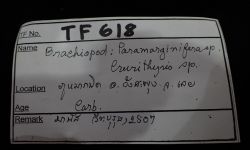 TF No. TF 618
Name Brachiopod: Paramarginifera sp.
Crurithyris sp.
Location อ. วังสะพุง จ. เลย
Age Carb.
Remark 2507